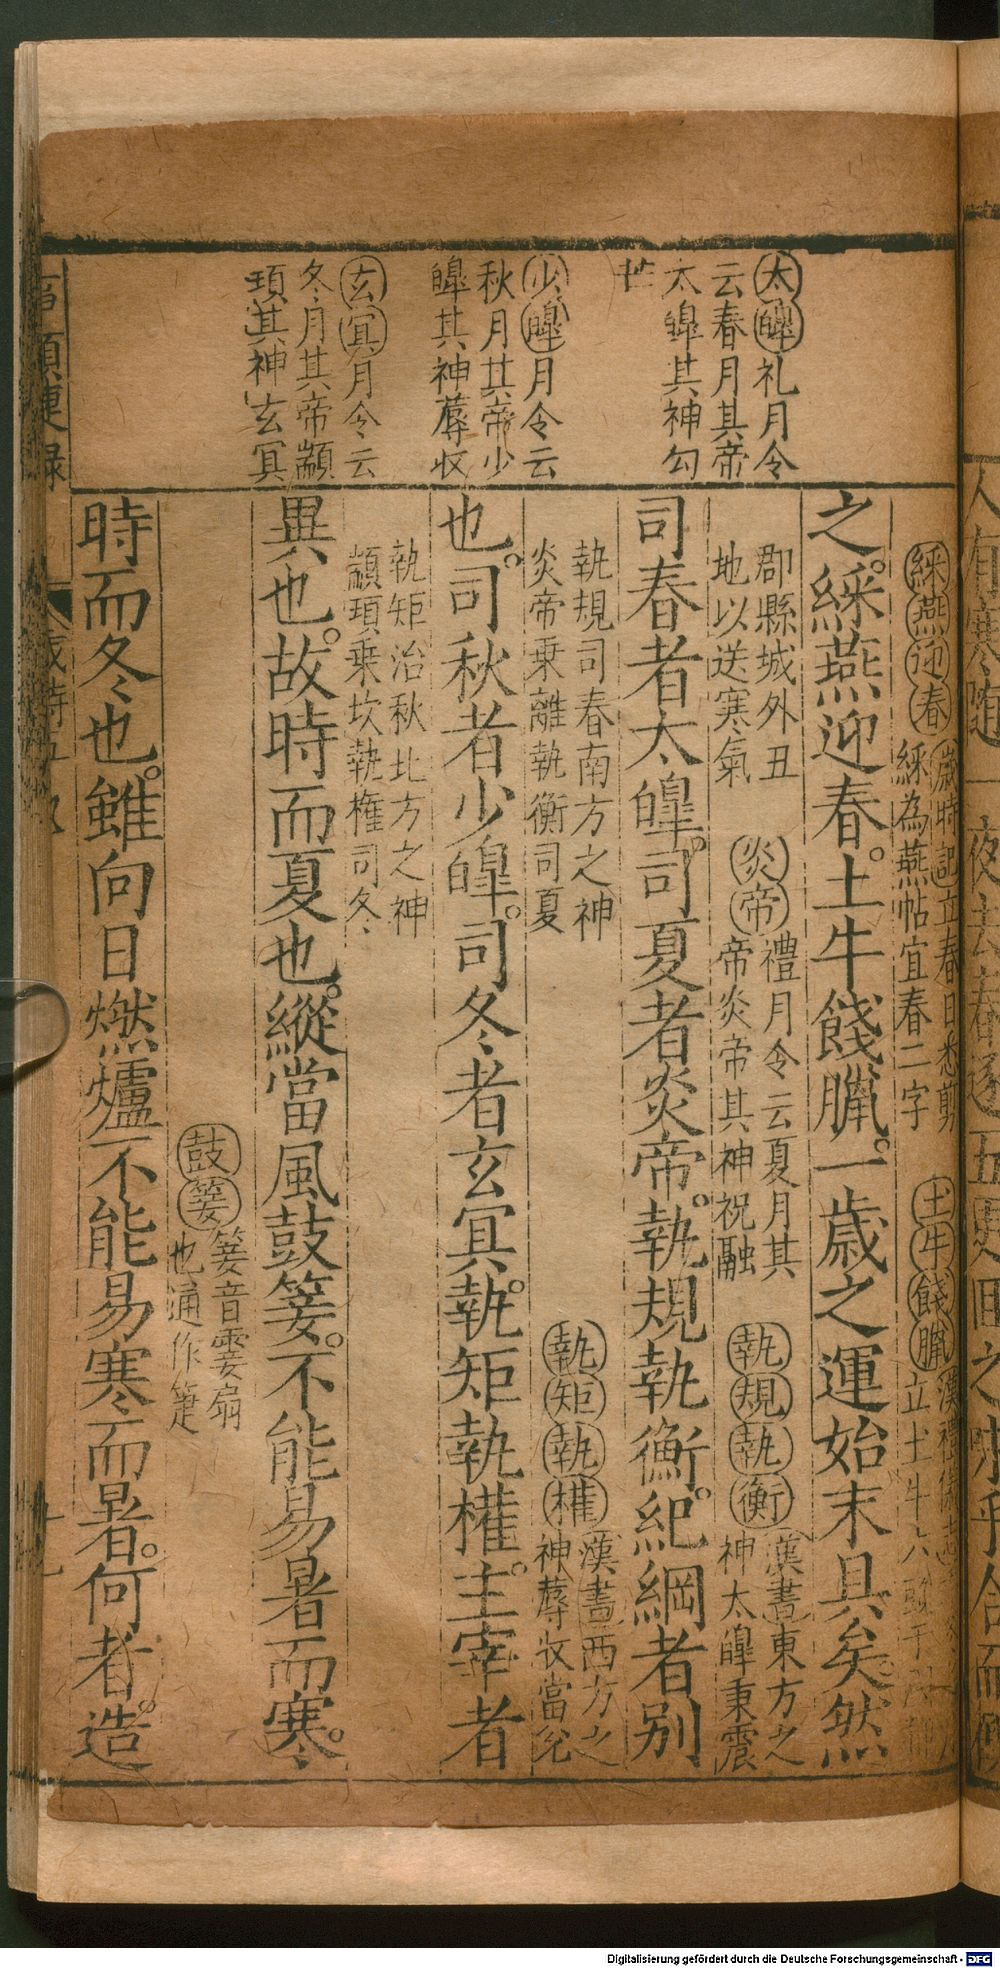 太皥礼月令
云春月其帝
太皥其神勾
芒
少皥月令云
秋月其帝少
皥其神蓐收
玄冥月令云
冬月其帝顓
頊其神玄冥
綵燕迎春歲時記立春日悉剪
綵為燕帖宜春二字
土牛餞臘漢禮儀志
立土牛六頭于
之。綵燕迎春。土牛餞臘。一歲之運始末具矣。然
郡縣城外丑
地以送寒氣
炎帝禮月令云夏月其
帝炎帝其神祝融
執規執衡漢書東方之
神太皥秉震
司春者太皥。司夏者炎帝。執規執衡。紀綱者別
執規司春南方之神
炎帝乗離執衡司夏
執矩執權漢書西方之
神蓐收當兊
也。司秋者少皥。司冬者玄冥。執矩執權。主宰者
執矩治秋北方之神
顓頊乗坎執権司冬
異也。故時而夏也。縱當風鼓箑。不能易暑而寒。
鼓箑箑音霎扇
也通作箑
時而冬也。雖向日燃爐不能易寒而暑。何者。造
Digitalisierung gefördert durch die Deutsche Forschungsgemeinschaft - DFG